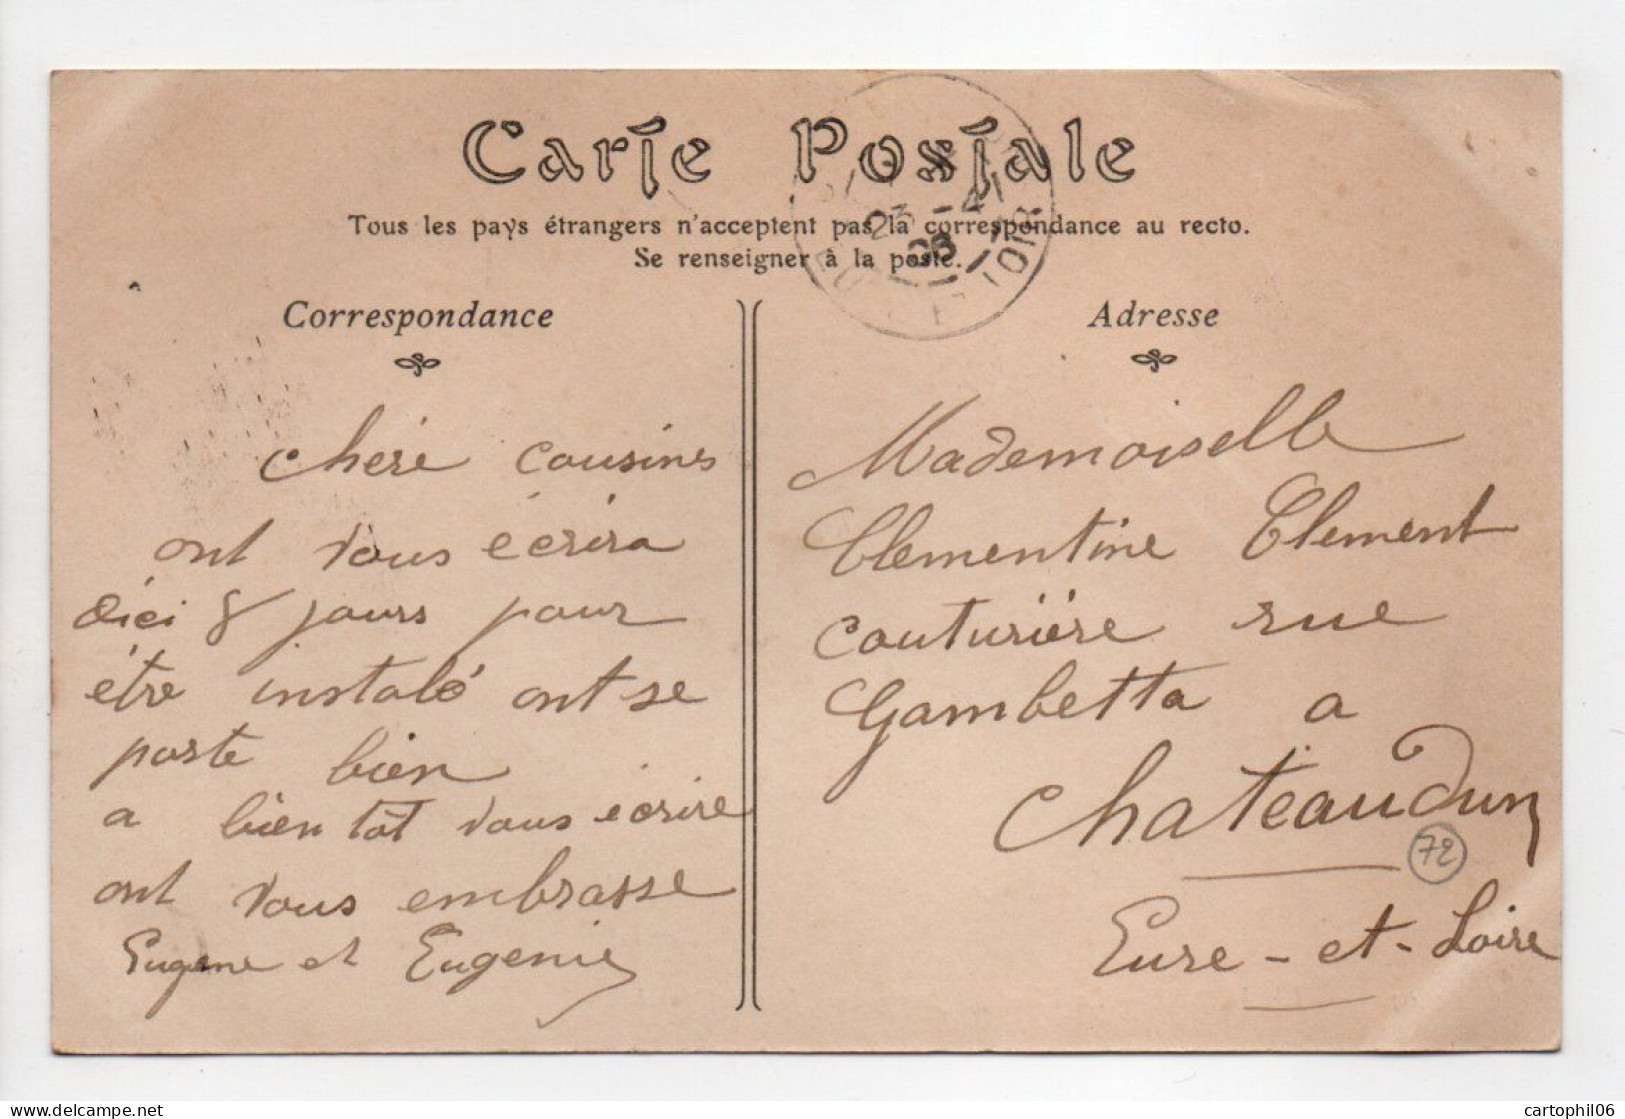 Carte Postale
Tous les pays étrangers n'acceptent pas la correspondance au recto.
Se renseigner à la poste.
Correspondance
Adresse
chere cousines
ont vous écrira
dici 8 jours pour
être instalé ont se
porte bien
a bientôt vous écrire
ont vous embrasse
Eugene et Eugenie
Mademoiselle
Clementine Clement
couturière rue
Gambetta a
Chateaudun
Eure-et-Loire
72
23 -4
06
EURE ET LOIR
www.delcampe.net
cartophil06